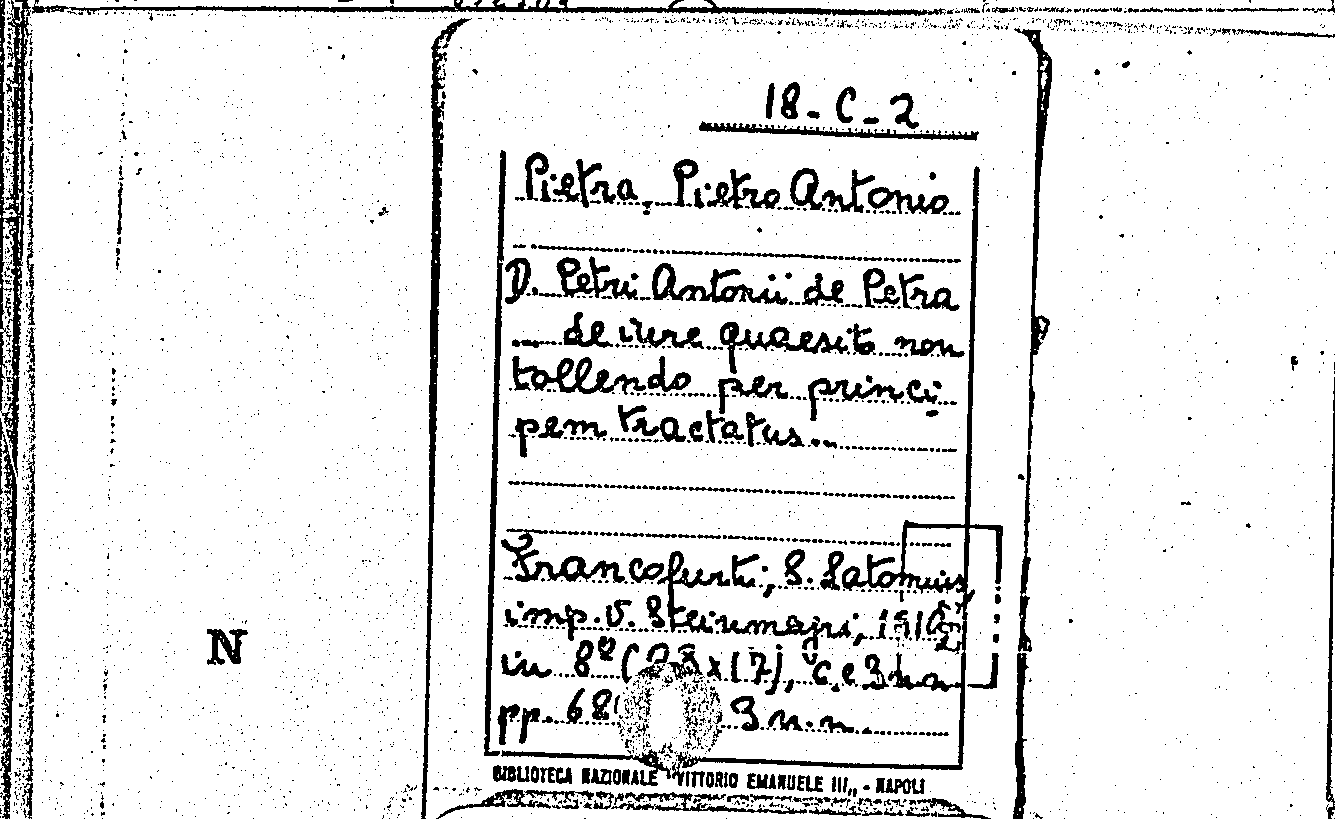 18-C-2
Pietra, Pietro Antonio
D. Petri Antonii de Petra
... de iure quaesito non
tollendo per princi
pem tractatus...
Francofurti, S. Latomus,
imp. V. Steinmejri,
in 8º ( x17), c. 3 n.n.
pp. 68 3 n.n.
N
BIBLIOTECA NAZIONALE "VITTORIO EMANUELE III„ - NAPOLI